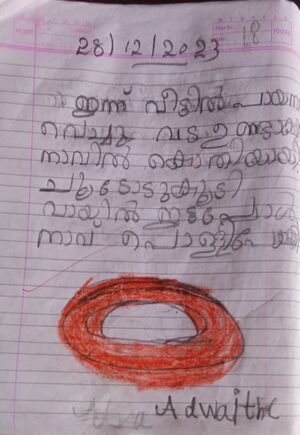 18
28/12/2023
ഇന്ന് വീട്ടിൽ പായസ
വെച്ചു വട ഉണ്ടാക്കി
നാവിൽ കൊതിയായി
ചൂടോടുകൂടി
വായിൽ ഇട്ടപ്പോൾ
നാവ് പൊള്ളിപോയി
Adwaith C